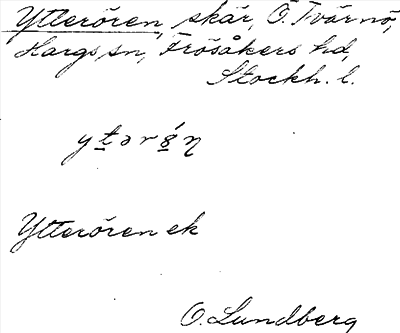 Ytterören, skär, Ö. Tvärnö,
Hargs sn, Frösåkers hd,
Stockh. l.
Ytterören ek
O. Lundberg